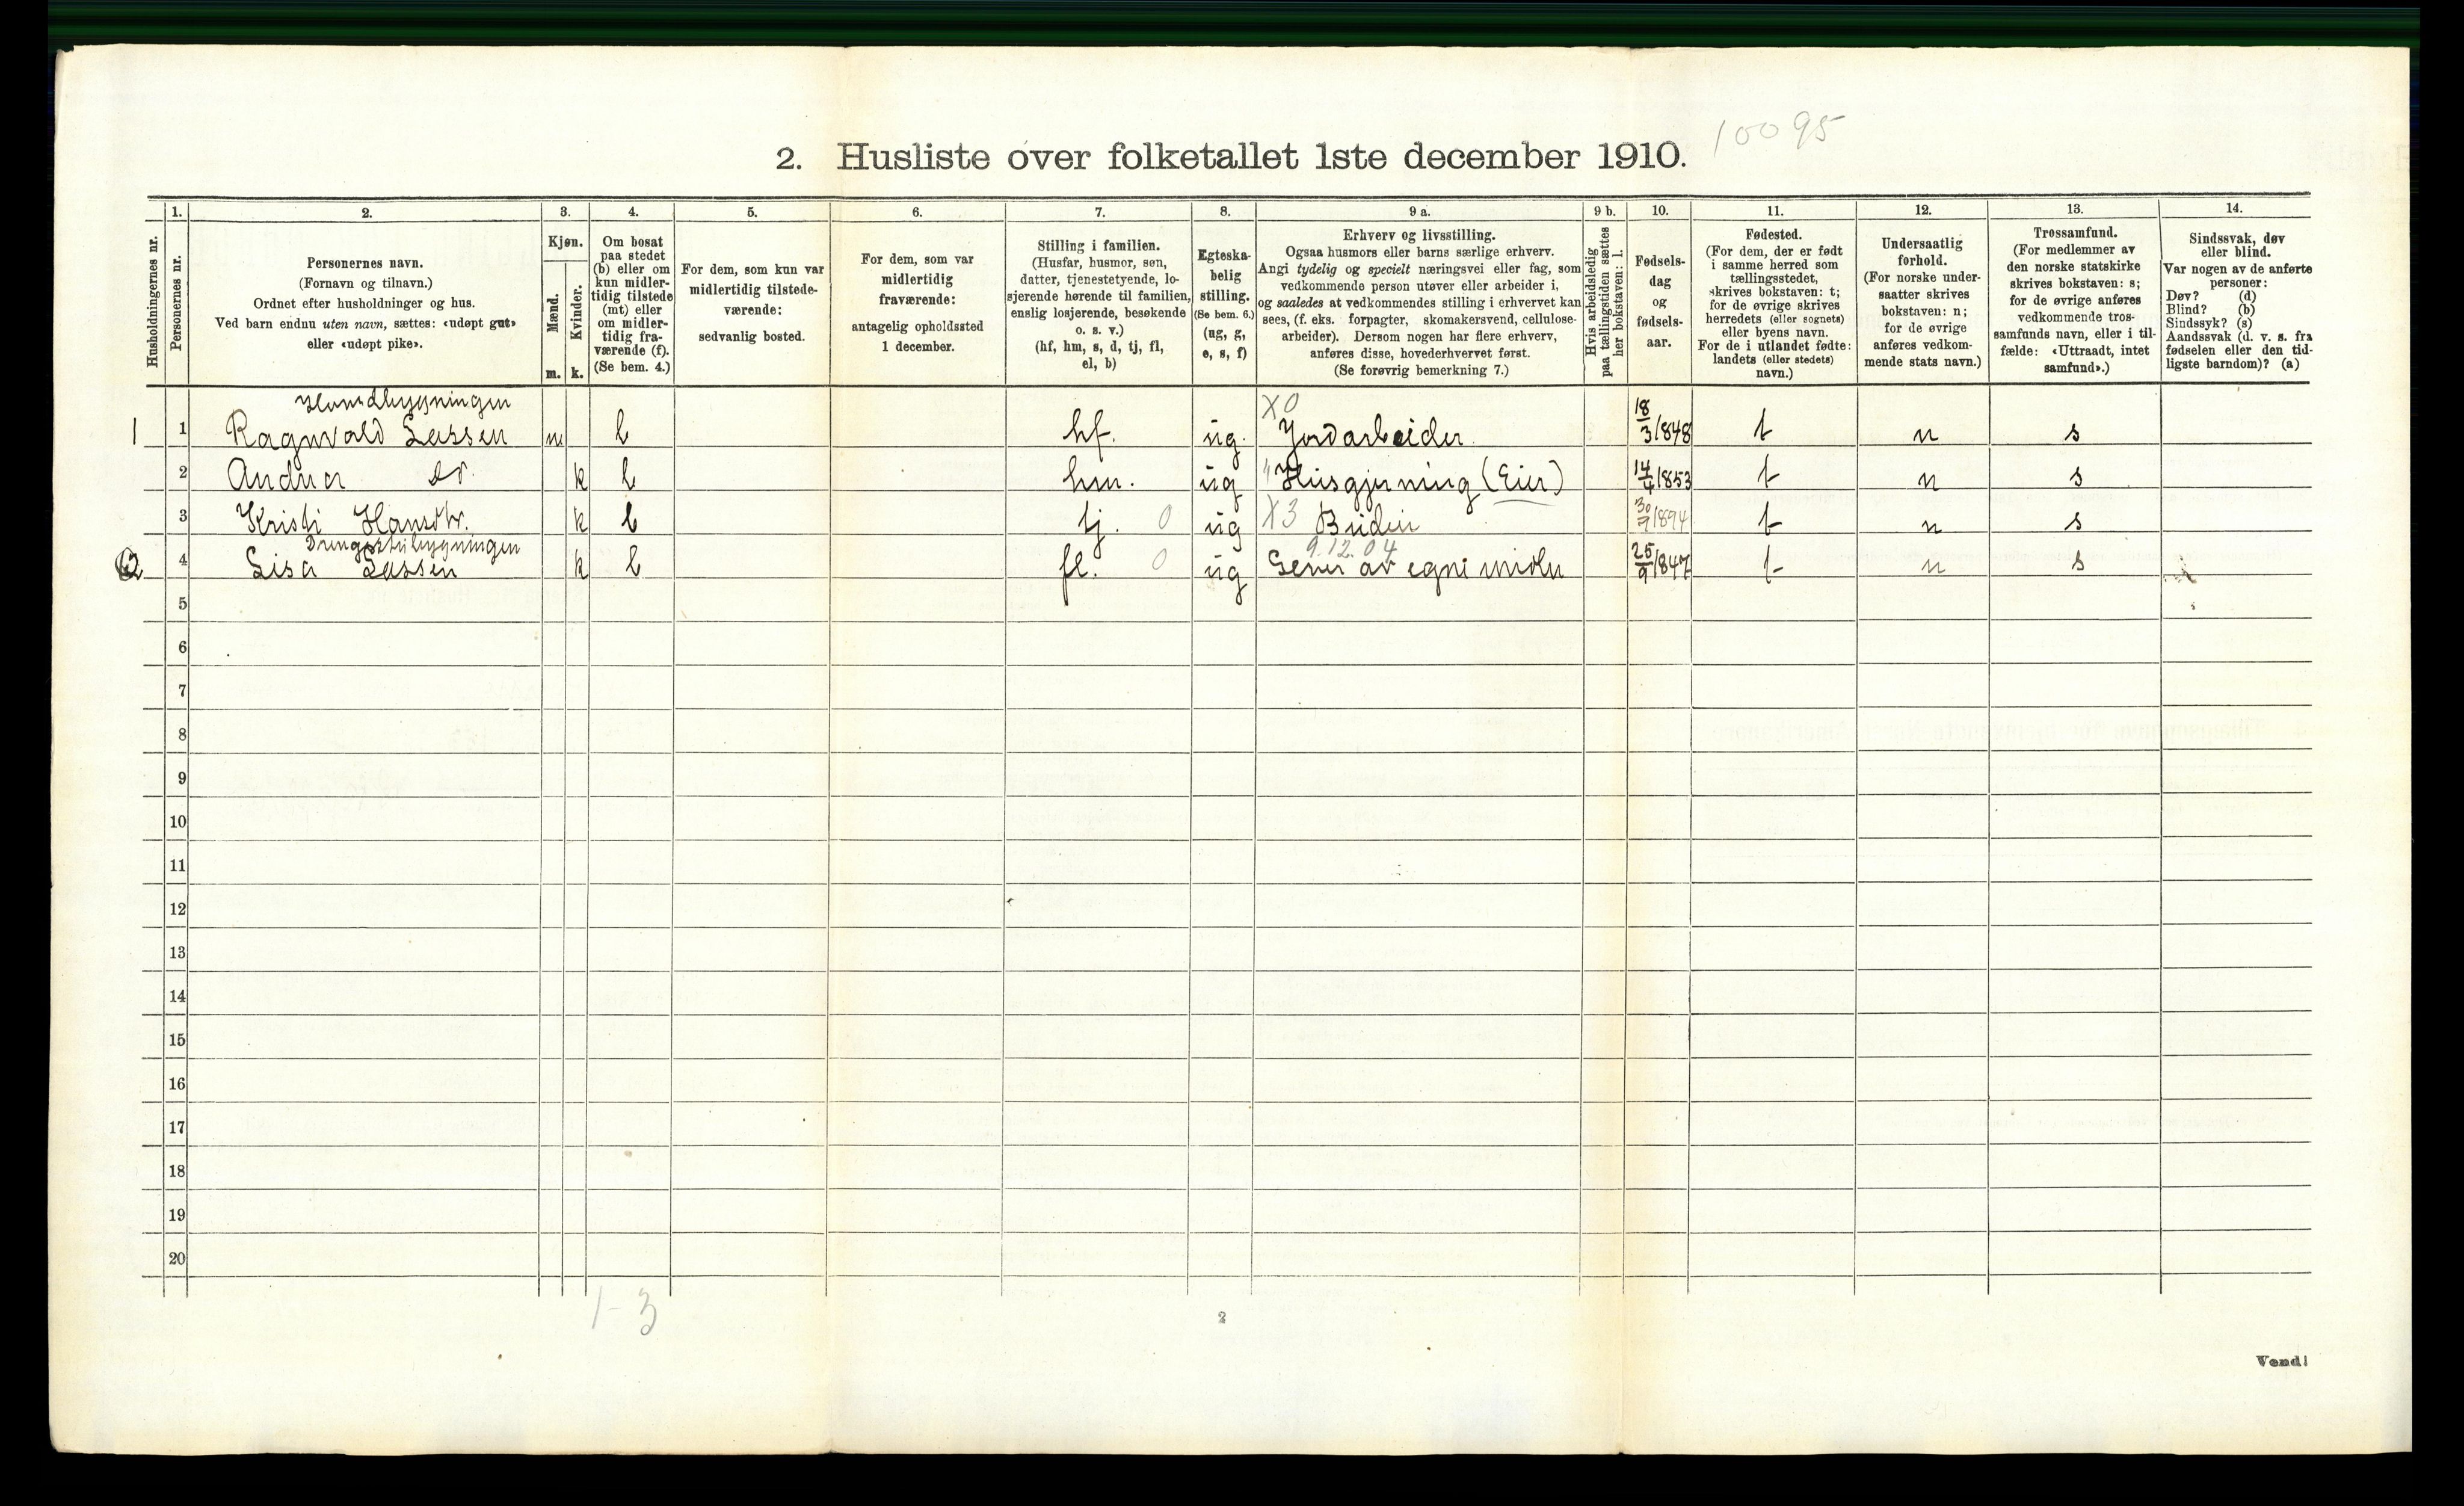 10095
2. Husliste over folketallet 1ste december 1910.
1. 2. 3. 4. 5. 6. 7. 8. 9 a. 9 b. 10. 11. 12. 13. 14.
Husholdningernes nr.
Personernes nr.
Personernes navn.
(Fornavn og tilnavn.)
Ordnet efter husholdninger og hus.
Ved barn endnu uten navn, sættes: «udøpt gut»
eller «udøpt pike».
Kjøn.
Mænd.
Kvinder.
m. k.
Om bosat
paa stedet
(b) eller om
kun midler-
tidig tilstede
(mt) eller
om midler-
tidig fra-
værende (f).
(Se bem. 4.)
For dem, som kun var
midlertidig tilstede-
værende:
sedvanlig bosted.
For dem, som var
midlertidig
fraværende:
antagelig opholdssted
1 december.
Stilling i familien.
(Husfar, husmor, søn,
datter, tjenestetyende, lo-
sjerende hørende til familien,
enslig losjerende, besøkende
o. s. v.)
(hf, hm, s, d, tj, fl,
el, b)
Egteska-
belig
stilling.
(Se bem. 6.)
(ug, g,
e, s, f)
Erhverv og livsstilling.
Ogsaa husmors eller barns særlige erhverv.
Angi tydelig og specielt næringsvei eller fag, som
vedkommende person utøver eller arbeider i,
og saaledes at vedkommendes stilling i erhvervet kan
sees, (f. eks. forpagter, skomakersvend, cellulose-
arbeider). Dersom nogen har flere erhverv,
anføres disse, hovederhvervet først.
(Se forøvrig bemerkning 7.)
Hvis arbeidsledig
paa tællingstiden sættes
her bokstaven: l.
Fødsels-
dag
og
fødsels-
aar.
Fødested.
(For dem, der er født
i samme herred som
tællingsstedet,
skrives bokstaven: t;
for de øvrige skrives
herredets (eller sognets)
eller byens navn.
For de i utlandet fødte:
landets (eller stedets)
navn.)
Undersaatlig
forhold.
(For norske under-
saatter skrives
bokstaven: n;
for de øvrige
anføres vedkom-
mende stats navn.)
Trossamfund.
(For medlemmer av
den norske statskirke
skrives bokstaven: s;
for de øvrige anføres
vedkommende tros-
samfunds navn, eller i til-
fælde: «Uttraadt, intet
samfund».)
Sindssvak, døv
eller blind.
Var nogen av de anførte
personer:
Døv? (d)
Blind? (b)
Sindssyk? (s)
Aandssvak (d. v. s. fra
fødselen eller den tid-
ligste barndom)? (a)
Hovedbygningen X0
1 1 Ragnvald Lassen m b hf. ug. Jordarbeider 18/3 1848 t n s
2 Andrea do. k b hm. ug " Husgjerning (Eier) 14/4 1853 t n s
3 Kristi Hansdtr. k b tj. 0 ug X3 Budeie 30/9 1894 t n s
Drengestubygningen 9.12.04
2 4 Lisa Lassen k b fl. 0 ug Lever av egne midler 25/9 1847 t n s
5
6
7
8
9
10
11
12
13
14
15
16
17
18
19
20
1-3
2
Vend!